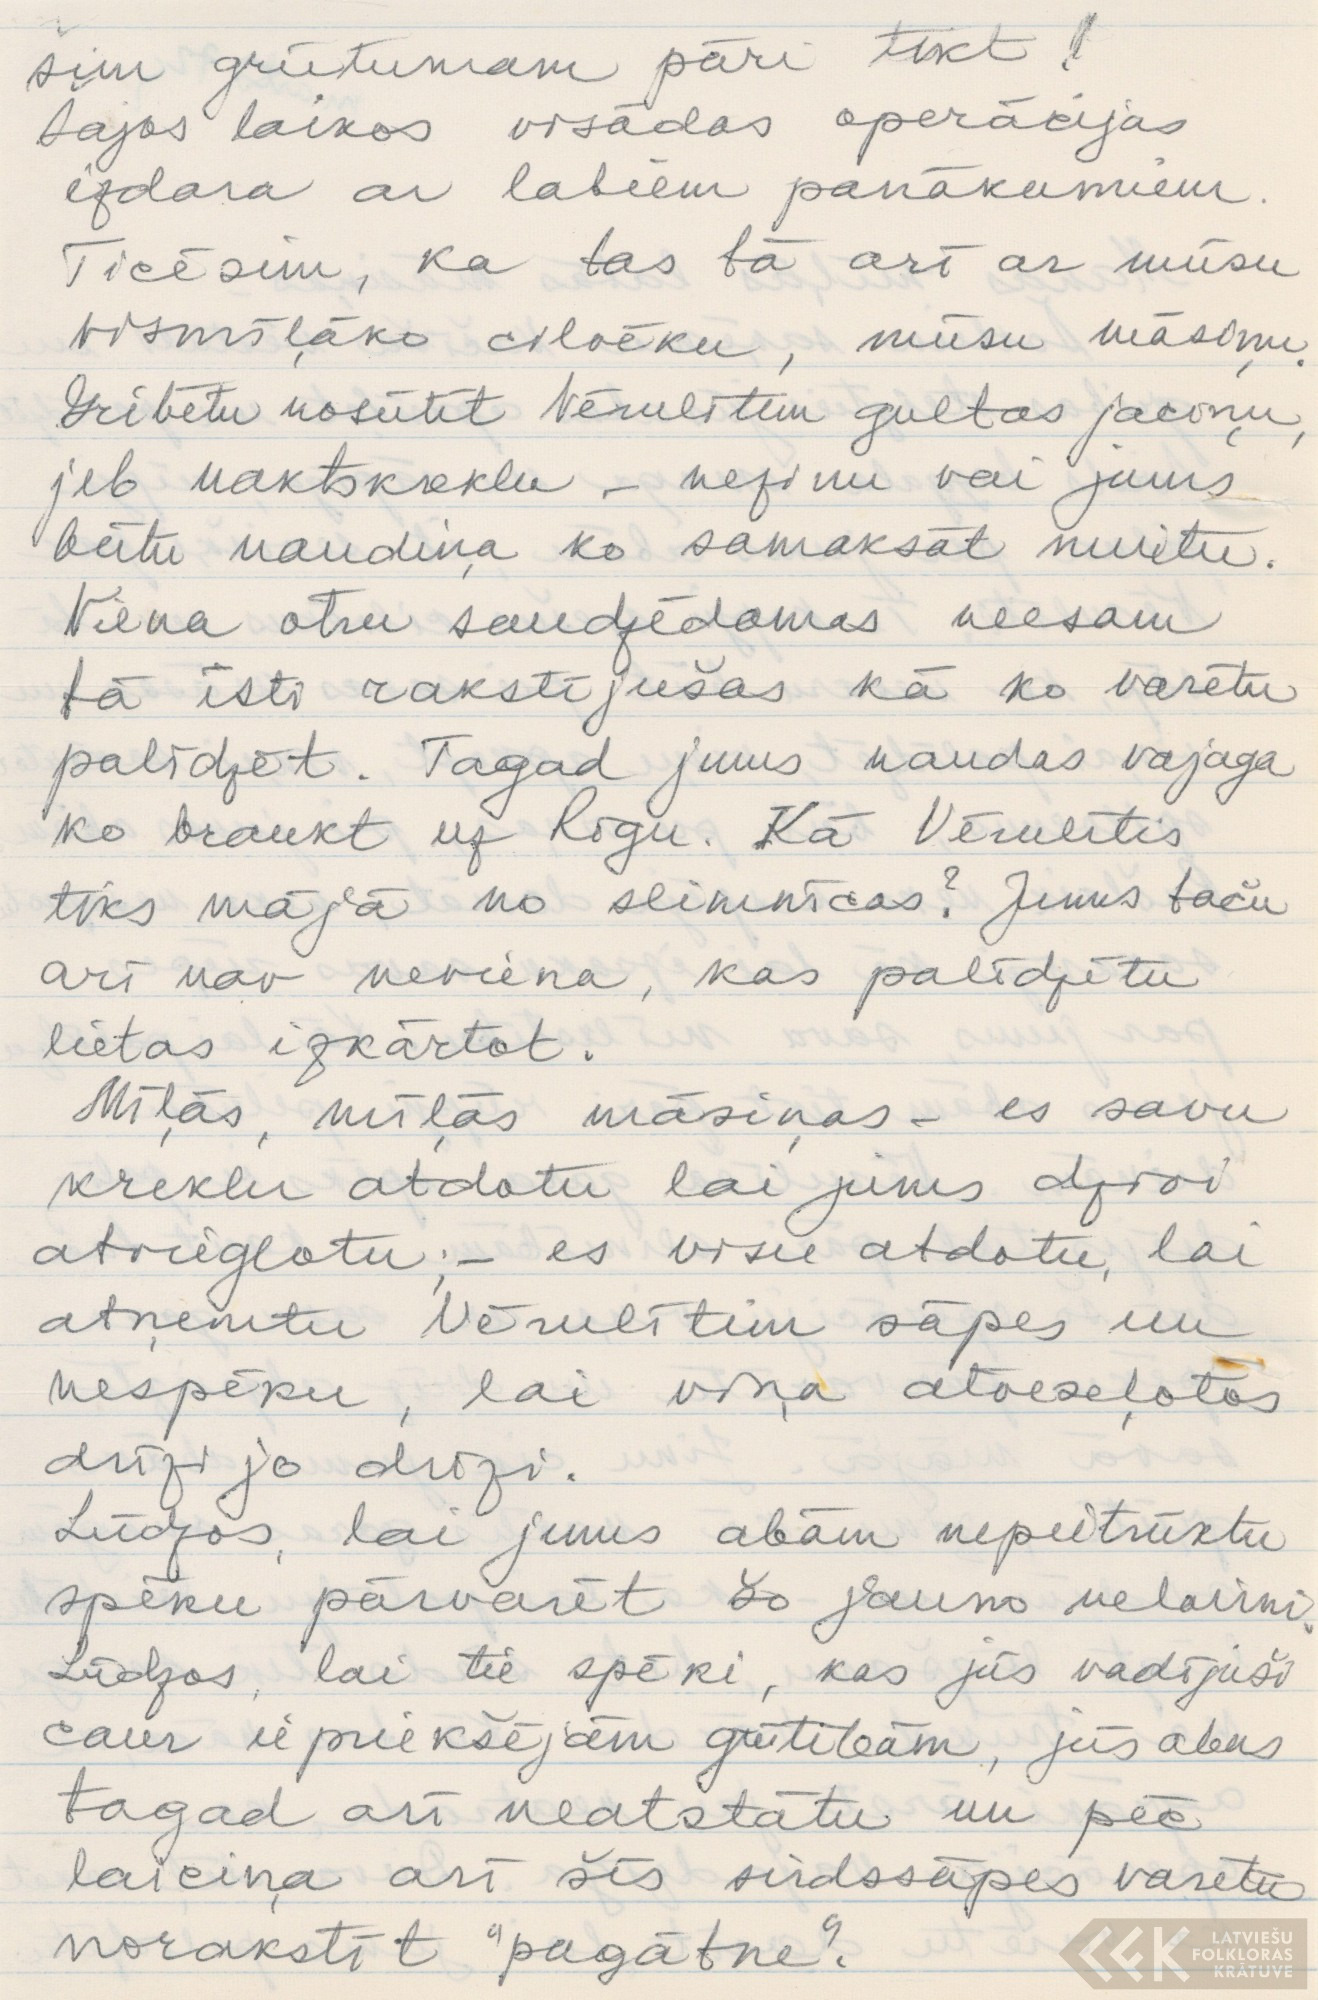 šim grūtumam pāri tikt!
šajos laikos visādas operācijas
izdara ar labiem panākumiem.
Ticēsim, ka tas tā arī ar mūsu
vismīļāko cilvēku, mūsu māsiņu.
Gribētu nosūtīt Vērulītim gultas jaciņu,
jeb naktskreklu – nezinu vai jums
būtu naudiņa ko samaksāt muitu.
Viena otru saudzēdamas neesam
tā īsti rakstījušas kā ko varētu
palīdzēt. Tagad jums naudas vajaga
ko braukt uz Rīgu. Kā Vērulītis
tiks mājā no slimnīcas? Jums taču
arī nav neviena, kas palīdzētu
lietas izkārtot.
Mīļās, mīļās māsiņas – es savu
kreklu atdotu lai jums dzīvi
atvieglotu; – es visu atdotu, lai
atņemtu Vērulītim sāpes un
nespēku, lai viņa atveseļotos
drīzi jo drīzi.
Lūdzos, lai jums abām nepietrūktu
spēku pārvarēt šo jauno nelaimi.
Lūdzos, lai tie spēki, kas jūs vadījuši
caur iepriekšējām grūtībām, jūs abas
tagad arī neatstātu un pēc
laiciņa arī šīs sirdssāpes varētu
norakstīt "pagātne".
LATVIEŠU
FOLKLORAS
KRĀTUVE